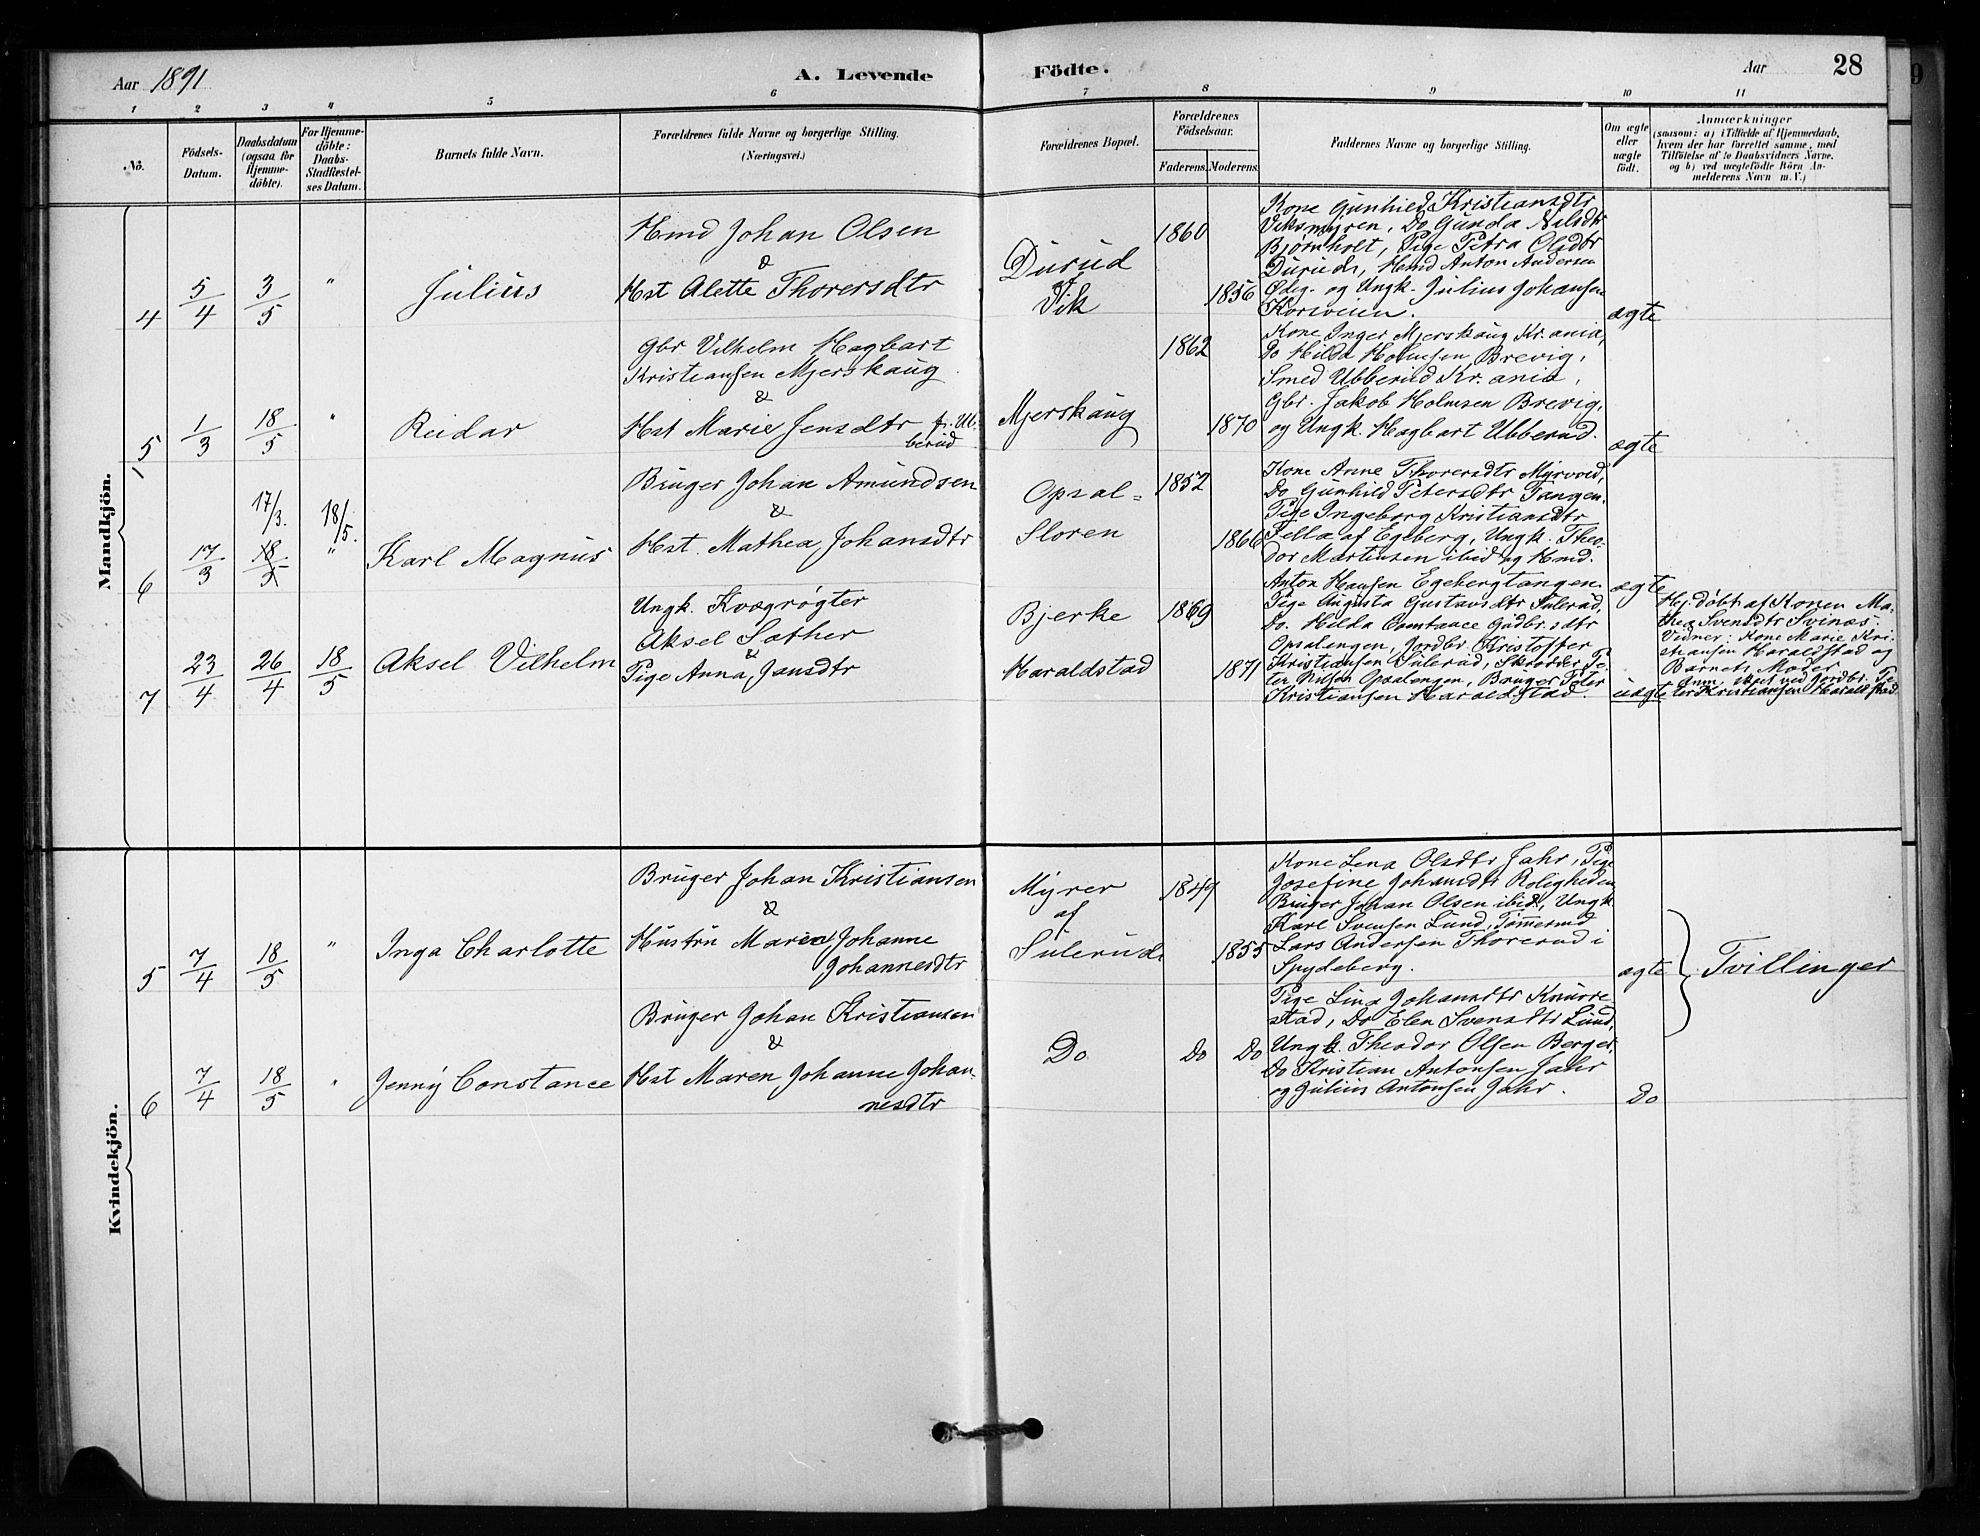 Aar 1891
A. Levende
Födte.
Aar
28
1 2 3 4 5 6 7 8 9 10 11
No.
Födsels-
Datum.
Daabsdatum
(ogsaa for
Hjemme-
döbte).
For Hjemme-
döbte:
Daabs-
Stadfæstel-
ses Datum.
Barnets fulde Navn.
Forældrenes fulde Navne og borgerlige Stilling.
(Næringsvei.)
Forældrenes Bopæl.
Forældrenes
Födselsaar.
Faderens. Moderens.
Faddernes Navne og borgerlige Stilling.
Om ægte
eller
uægte
födt.
Anmærkninger
(saasom: a) i Tilfælde af Hjemmedaab,
hvem der har forrettet samme, med
Tilföielse af to Daabsvidners Navne,
og b) ved uægtefödte Börn An-
melderens Navn m. V.)
Mandkjön.
4
5/4
3/5
"
Julius
Hmd Johan Olsen
&
Hst Alette Thorersdtr
Durud
af
Vik
1860
1856
Kone Gunhild Kristiansdtr
Viksmyren, Do Gunda Nilsdtr
Bjørnholt, Pige Petra Olsdtr
Durud, Hmd Anton Andersen
Ødeg. og Ungk. Julius Johansen
Korsveien.
ægte
5
1/3
18/5
"
Reidar
Gbr Vilhelm Hagbart
Kristiansen Mjerskaug
&
Hst Marie Jensdtr fr. Ub-
berud
Mjerskaug
1862
1870
Kone Inger Mjerskaug Kr.ania,
Do Hilda Holmsen Brevig,
Smed Ubberud Kr.ania,
Gbr. Jakob Holmsen Brevig,
og Ungk. Hagbart Ubberud.
ægte
6
17/3
17/3.
18/5
18/5.
"
Karl Magnus
Bruger Johan Amundsen
&
Hst. Mathea Johansdtr
Opsal-
Sloren
1852
1866
Kone Anne Thorersdtr Myrvold,
Do Gunhild Petersdtr Tangen,
Pige Ingeborg Kristiansdtr
Fella af Egeberg, Ungk. Theo-
dor Martinsen ibid og Hmd.
Anton Hansen Egebergtangen.
ægte
7
23/4
26/4
18/5
Aksel Vilhelm
Ungk. Kvægrøgter
Aksel Sæther
&
Pige Anna Jansdtr
Bjerke
Haraldstad
1869
1871
Pige Augusta Gustavsdtr Sulerud,
Do. Hilda Constance Gudbr.sdtr
Opsalengen, Jordbr. Kristoffer
Kristiansen Sulerud, Skrædder Pe-
ter Nilsen Opsalengen, Bruger Peter
Kristiansen Haraldstad.
uægte
Hj. døbt af Konen Ma-
thea Svensdtr Svinæs.
Vidner: Kone Marie Kri-
stiansen Haraldstad og
Barnets Moder
Anm. sket ved Jordbr. Pe-
ter Kristiansen Haraldstad
Kvindekjön.
5
7/4
18/5
"
Inga Charlotte
Bruger Johan Kristiansen
&
Hustru Maren Johanne
Johannesdtr
Myrer
af
Sulerud
1849
1855
Kone Lena Olsdtr Jahr, Pige
Josefine Johansdtr Roligheden,
Bruger Johan Olsen ibid, Ungk
Karl Svensen Lund, Tømmermd
Lars Andersen Thorerud i
Spydeberg.
ægte
Tvillinger
6
7/4
18/5
"
Jenny Constance
Bruger Johan Kristiansen
&
Hst Maren Johanne Johan-
nesdtr
Do
Do
Do
Pige Lina Johannsdtr Knurre-
stad, Do Elen Svensdtr Lund,
Ungk. Theodor Olsen Berger,
Do Kristian Antonsen Jahr
og Julius Antonsen Jahr.
Do